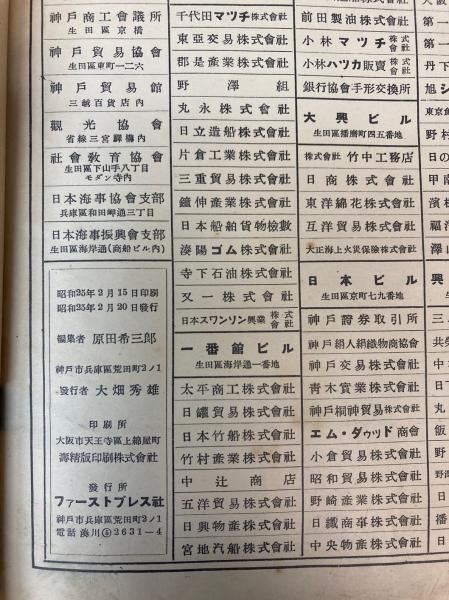 神戸商工會議所
生田區京橋
神戸貿易協會
生田區東町一二六
神戸貿易館
三越百貨店内
觀光協會
省線三宮驛構内
社會敎育協會
生田區下山手八丁目
モダン寺内
日本海事協會支部
兵庫區和田岬通三丁目
日本海事振興會支部
生田區海岸通(商船ビル内)
昭和25年2月15日印刷
昭和25年2月20日發行
編集者 原田希三郎
神戸市兵庫區荒田町2ノ1
發行者 大畑秀雄
印刷所
大阪市天王寺區上綿屋町
海精版印刷株式會社
發行所
ファーストプレス社
神戸市兵庫區荒田町2ノ1
電話湊川⑤2631-4
千代田マツチ株式會社
東亞交易株式會社
郡是産業株式會社
野澤組
丸永株式會社
日立造船株式會社
片倉工業株式會社
三重貿易株式會社
鐘伸産業株式會社
日本船舶貨物檢數
湊陽ゴム株式會社
寺下石油株式會社
又一株式會社
日本スワンソン興業株式會社
一番館ビル
生田區海岸通一番地
太平商工株式會社
日鑵貿易株式會社
日本竹船株式會社
竹村産業株式會社
中辻商店
五洋貿易株式會社
日興物産株式會社
宮地汽船株式會社
前田製油株式會社
小林マツチ株式會社
小林ハツカ販賣株式會社
銀行協會手形交換所
大興ビル
生田區播磨町四五番地
株式會社竹中工務店
日商株式會社
東洋綿花株式會社
互洋貿易株式會社
大正海上火災保險株式會社
日本ビル
生田區京町七九番地
神戸證券取引所
神戸絹人絹織物商協會
神戸交易株式會社
靑木實業株式會社
神戸桐神貿易株式會社
エム・ダヴッド商會
小倉貿易株式會社
昭和貿易株式會社
野崎産業株式會社
日織商事株式會社
中央物産株式會社